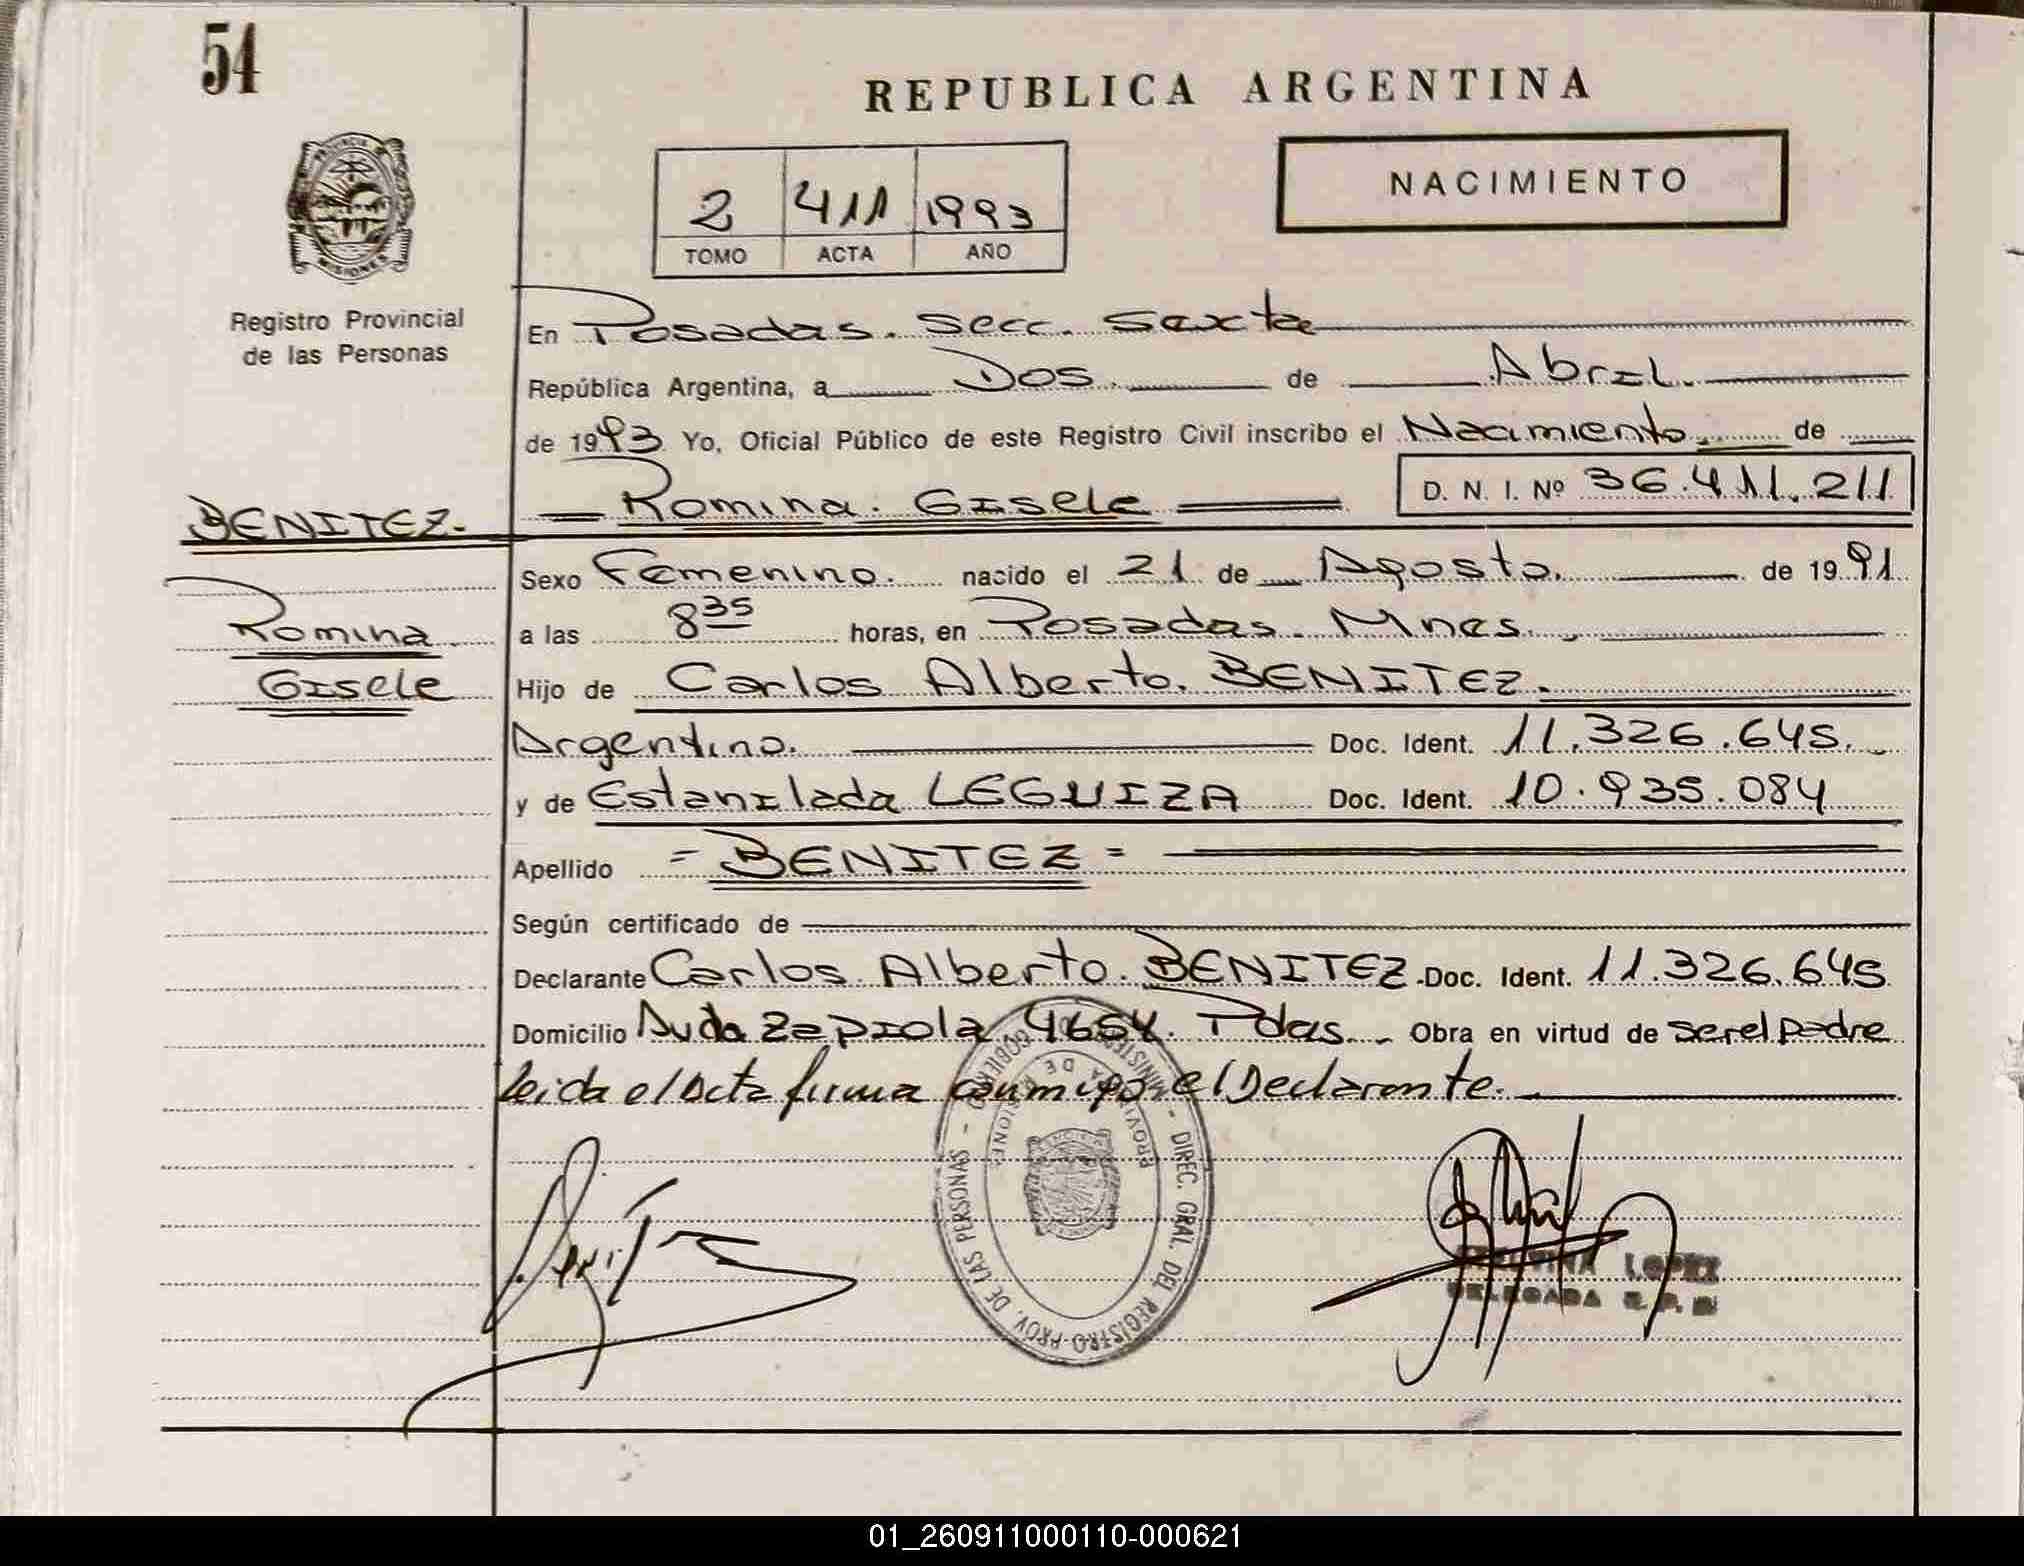 54
REPUBLICA ARGENTINA
NACIMIENTO
2 411 1993
TOMO ACTA AÑO
PROVINCIA DE MISIONES
Registro Provincial
de las Personas
En Posadas. Secc. Sexta
República Argentina, a Dos. de Abril.
de 1993 Yo, Oficial Público de este Registro Civil inscribo el Nacimiento. de
Romina. Gisele D. N. I. Nº 36.411.211
BENITEZ.
Romina
Gisele
Sexo Femenino. nacido el 21 de Agosto. de 1991
a las 8 35 horas, en Posadas. Mnes.
Hijo de Carlos Alberto. BENITEZ.
Argentino. Doc. Ident. 11.326.645.
y de Estanilada LEGUIZA Doc. Ident. 10.935.084
Apellido = BENITEZ =
Según certificado de
Declarante Carlos. Alberto. BENITEZ. Doc. Ident. 11.326.645
Domicilio Avda Zapiola 4654. Pdas. Obra en virtud de ser el padre
Leida el Acta firma conmigo el Declarante.
MINISTERIO DE GOBIERNO - DIREC. GRAL. DEL REGISTRO PROV. DE LAS PERSONAS -
PROVINCIA DE MISIONES
LOPEZ
DELEGADA R. P. P.
01_260911000110-000621